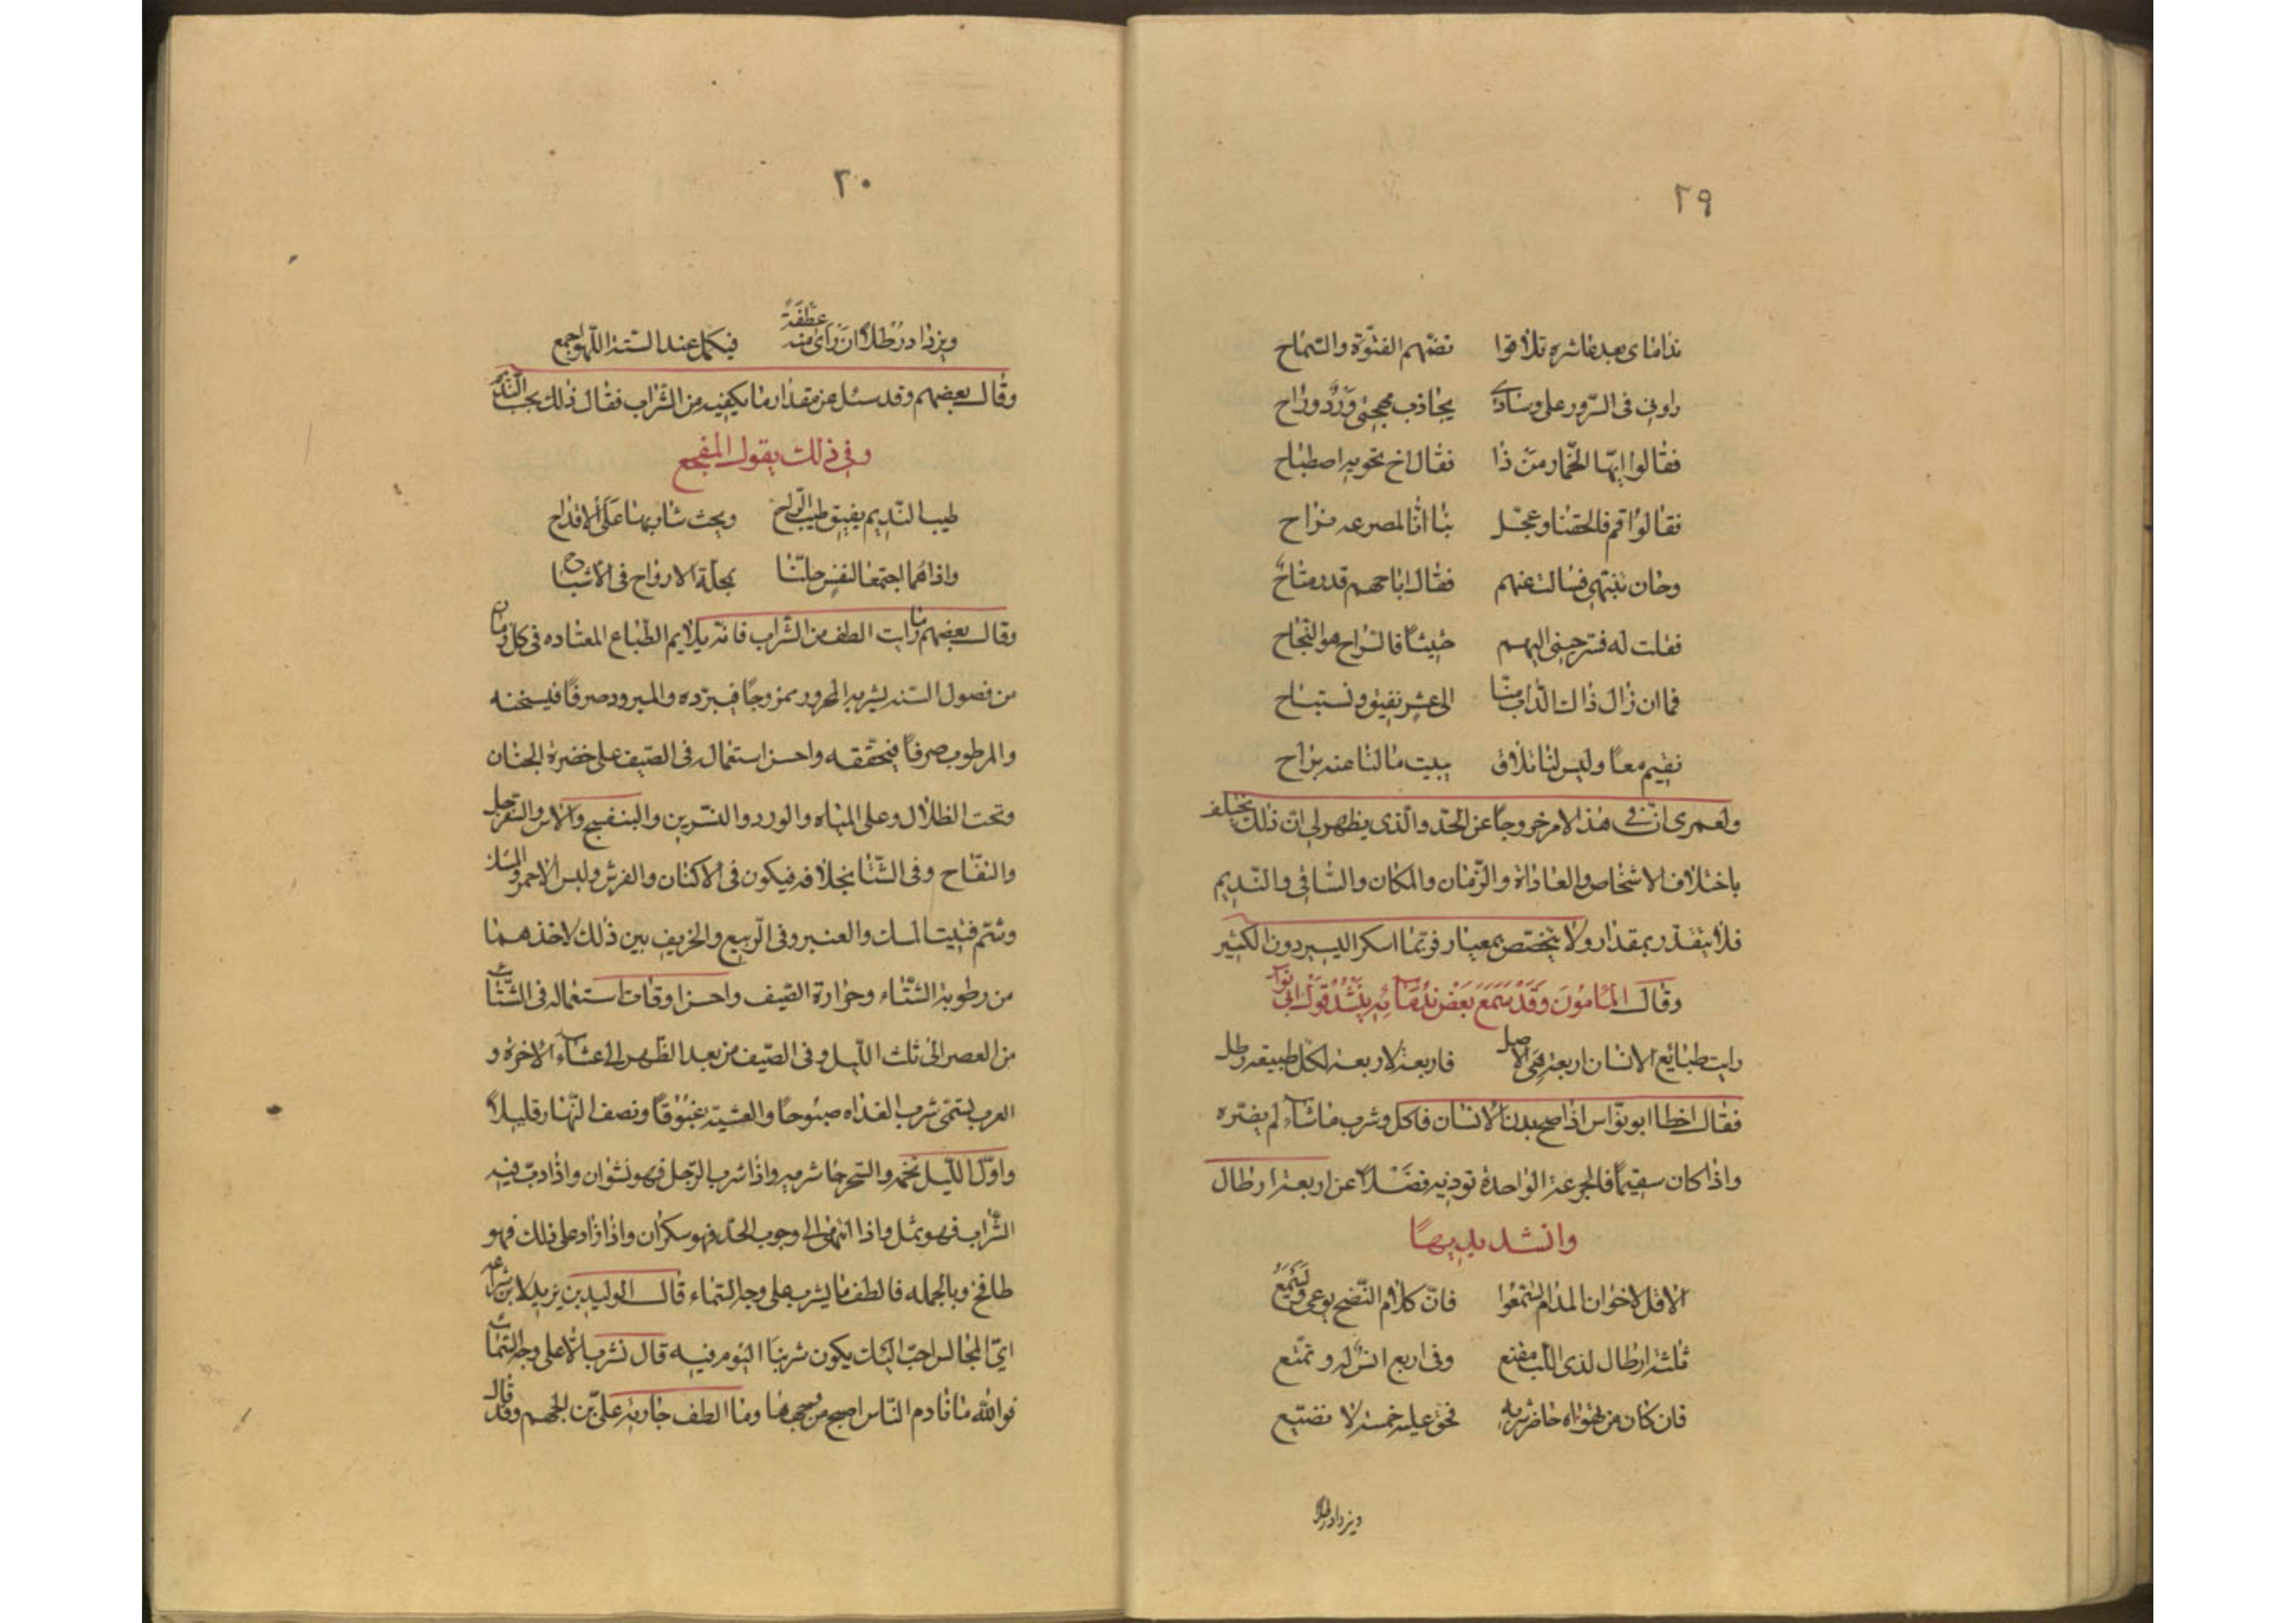 ٢٩
نداماى بعد عاشره تلاقوا تضمهم الفتوّة والسّماح
راونى فى السّرور على وسادى يجاذب مهجتى وَرْدٌ وراح
فقالوا ايّها الخمّار من ذا فقال اخ تخونه اصطباح
فقالوا قم فالحقنا وعجّل بنا انا لمصرعه نراح
وحان تنبّهى فسالت عنهم فقال اباحهم قدر متاح
فقلت له فسرحنى اليهم حثيثا فالسراح هو النجاح
فما ان زال ذاك الداب منّا الى عشر نفيق ونستباح
نقيم معًا وليس لنا تلاق ببيت ما لنا عنه براح
ولعمرى انّ فى هذا الامر خروجًا عن الحدّ والّذى يظهر لى انّ ذلك يختلف
باختلاف الاشخاص والعاداة والزّمان والمكان والسّاقى والنّديم
فلا يتقدّر بمقدار ولا يختص بمعيار فربّما اسكر اليسير دون الكثير
وقال المأمون وقد سمع بعض ندمآئه ينشد قول ابى نواس
رايت طبائع الانسان اربعة هى الاصل فاربعة لاربعة لكل طبيعة رطل
فقال اخطا ابو نوّاس اذا صح بدن الانسان فاكل وشرب ما شآء لم يضرّه
واذا كان سقيمًا فالجرعة الواحدة توذيه فضلًا عن اربعة ارطال
وانشد بديهًا
الا قل لاخوان المدام لتسمعوا فانّ كلام النّصح يوعى ويسمع
ثلثة ارطال لذى اللب مقنع وفى اربع انس له وتمتّع
فان كان من يهواه حاضر شربه فحق عليه خمسة لا تضيّع
ويزداد رطلا
٢٠
ويزداد رطلا ان رأى منه عطفة فيكمل عند الستة اللّهو اجمع
وقال بعضهم وقد سئل عن مقدار ما يكفيه من الشّراب فقال ذلك بحسب النديم
وفى ذلك يقول المفجع
طيب النّديم يفيق طيب الرّاح ويحث شاربها على الاقداح
واذا هما اجتمعا لنفس حلتا كمحلّة الارواح فى الاشباح
وقال بعضهم ما رايت الطف من الشّراب فانه يلايم الطّباع المعتاده فى كل زمان
من فصول السّنة يشربه المحرور ممزوجًا فيبرّده والمبرود صرفًا فيسخنه
والمرطوب صرفًا فيحقّقه واحسن استعماله فى الصّيف على خضرة الجنان
وتحت الظلال وعلى المياه والورد والنّسرين والبنفسج والاس والسّفرجل
والتفّاح وفى الشّتا بخلافه فيكون فى الاكنان والفرش ولبس الاحمر
وشمّ فتيت المسك والعنبر وفى الرّبيع والخريف بين ذلك لاخذهما
من رطوبة الشّتاء وحرارة القيف واحسن اوقات استعماله فى الشّتاء
من العصر الى ثلث اللّيل وفى الصّيف من بعد الظّهر الى عشآء الآخرة و
العرب تسمّى شرب الغذاه صبوحًا والعشيّة غبوقًا ونصف النّهار قليلًا
واوّل اللّيل نخمه والسّحر جاشرميه واذا شرب الرّجل فهو نشوان واذا دبّ فيه
الشّراب فهو ثمل واذا انتهى الى وجوب الحدّ فهو سكران واذا زاد على ذلك فهو
طافح وبالجمله فالطف ما يشرب على وجه السّماء قال الوليد بن يزيد لابن شراعة
اىّ المجالس احبّ اليك يكون شربنا اليوم فيه قال نشرب الّا على وجه السّماء
فوالله ما نادم النّاس اصبح من وجهها وما الطف جاريه علىّ بن الجهم وقد قال